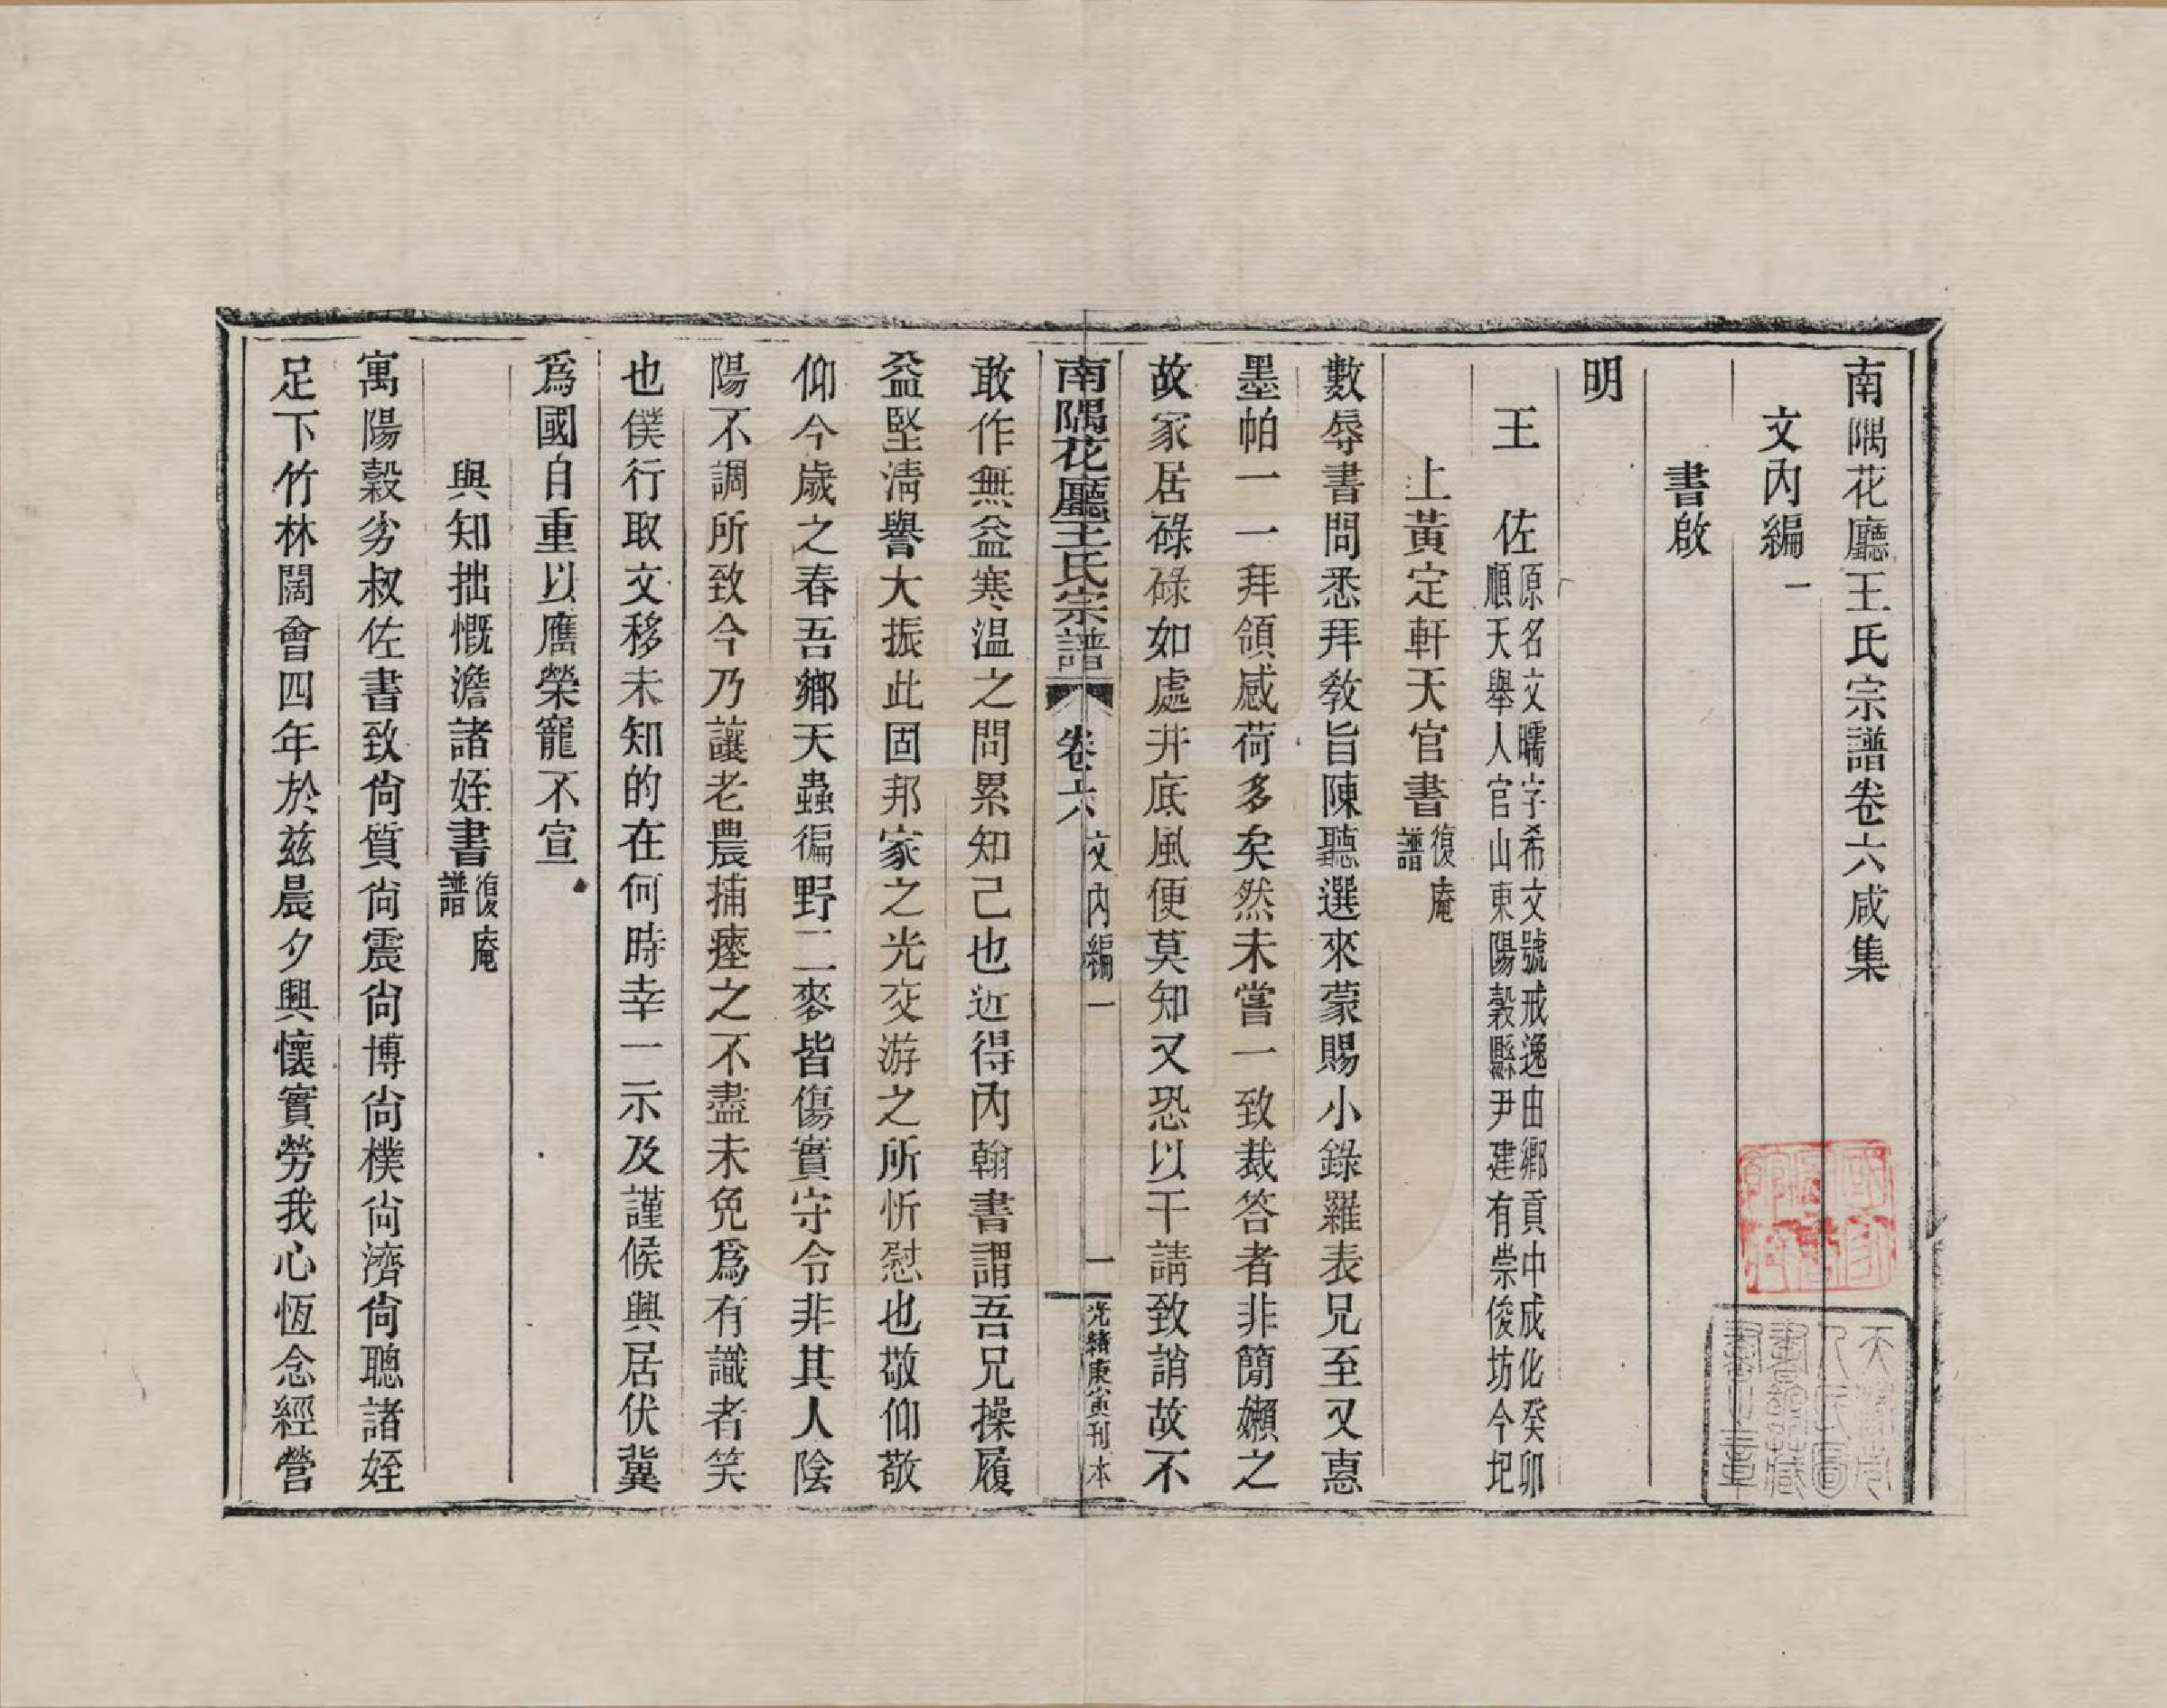 南隅花廳王氏宗譜卷六咸集
文內編一
書啟
明
王佐原名文曘字希文號戒逸由鄉貢中成化癸卯
順天舉人官山東陽穀縣尹建有崇俊坊今圯
上黃定軒天官書復庵
譜
數辱書問悉拜教旨陳聽選來蒙賜小錄羅表兄至又惠
墨帕一一拜領感荷多矣然未嘗一致裁答者非簡嬾之
故家居碌碌如處井底風便莫知又恐以干請致誚故不
南隅花廳王氏宗譜 卷六 文內編一 一 光緒庚寅刊本
敢作無益寒溫之問累知己也近得內翰書謂吾兄操履
益堅淸譽大振此固邦家之光交游之所忻慰也敬仰敬
仰今歲之春吾鄉天蟲徧野二麥皆傷實守令非其人陰
陽不調所致今乃讓老農捕瘞之不盡未免爲有識者笑
也僕行取文移未知的在何時幸一示及謹候興居伏冀
爲國自重以膺榮寵不宣
與知拙慨澹諸姪書復庵
譜
寓陽穀劣叔佐書致尙質尙震尙博尙樸尙濟尙聰諸姪
足下竹林闊會四年於兹晨夕興懷實勞我心恆念經營
國家圖書館藏